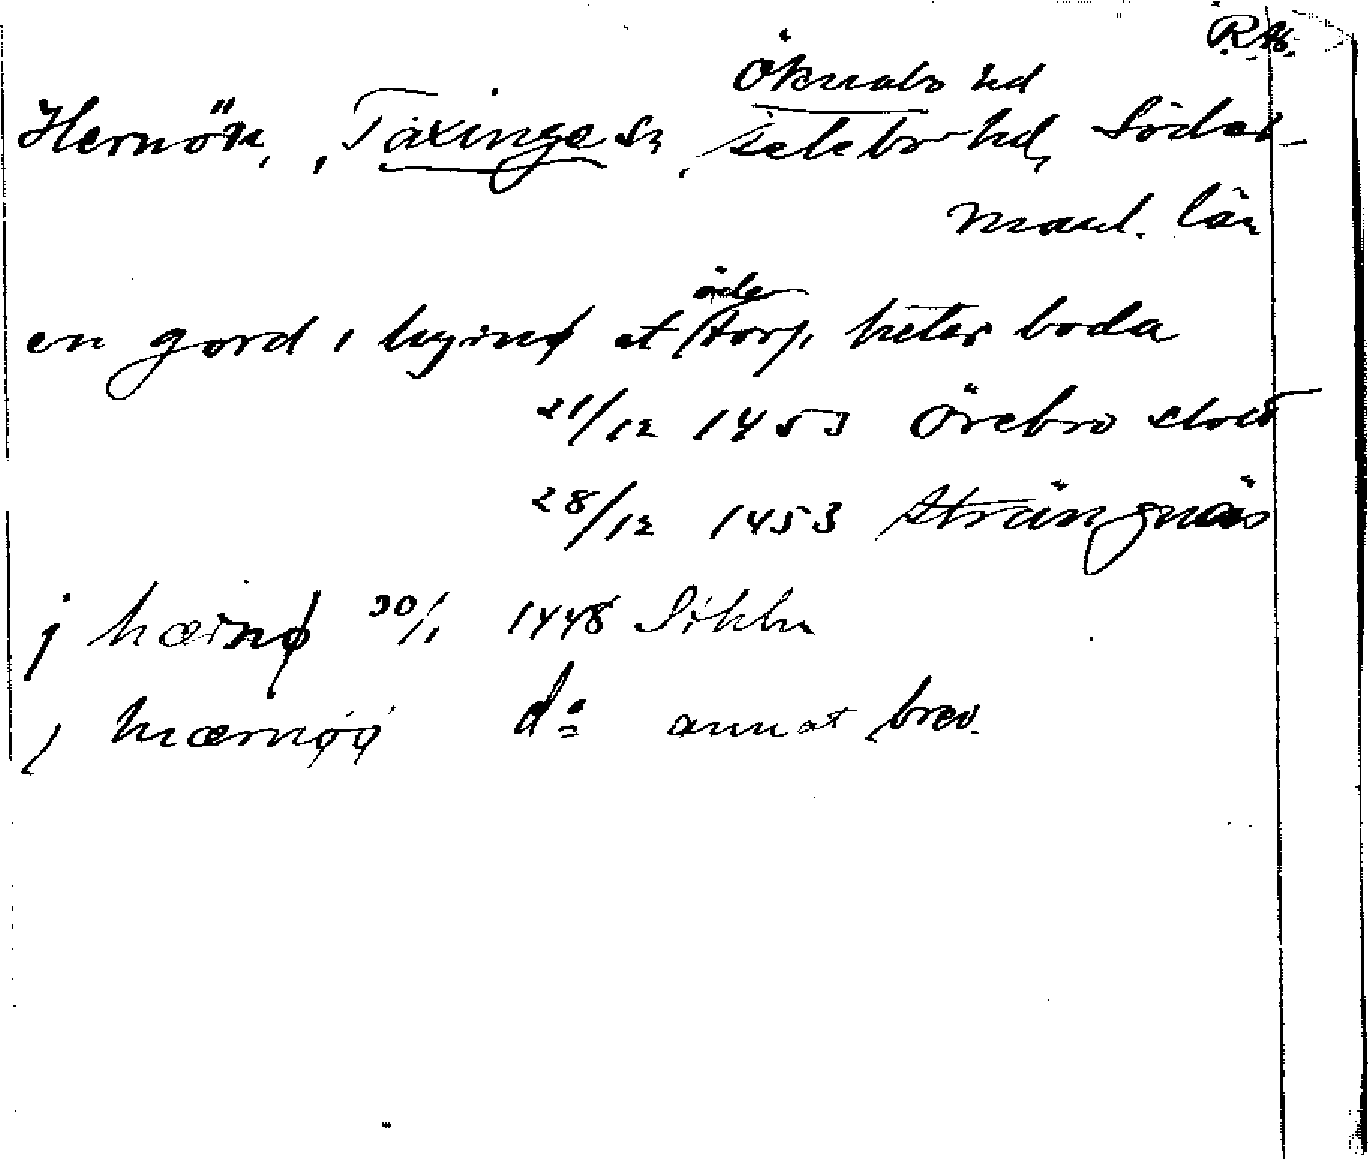 RA.
Öknabo hd
Hernön, Taxinge sn, Selebo hd, Söder-
manl. län
öde
en gord i hyrnø et torp heter boda
21/12 1453 Örebro slott
28/12 1453 Strängnäs
j hærnø 30/1 1448 Sthlm
j hærnøø do annat brev.